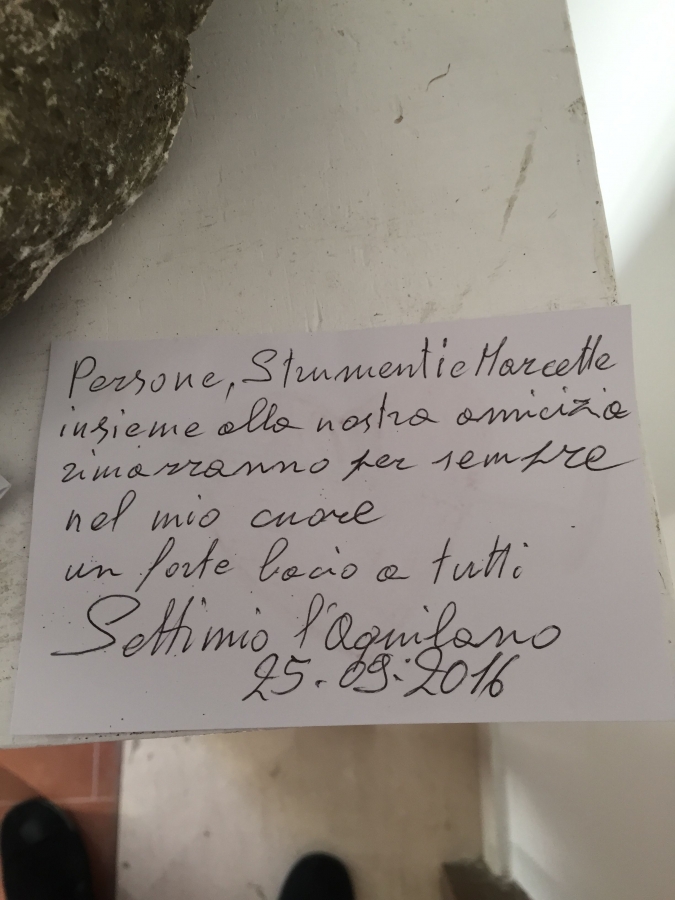 Persone, Strumenti e Marcette
insieme alla nostra amicizia
rimarranno per sempre
nel mio cuore
un forte bacio a tutti
Settimio l'Aquilano
25.09.2016